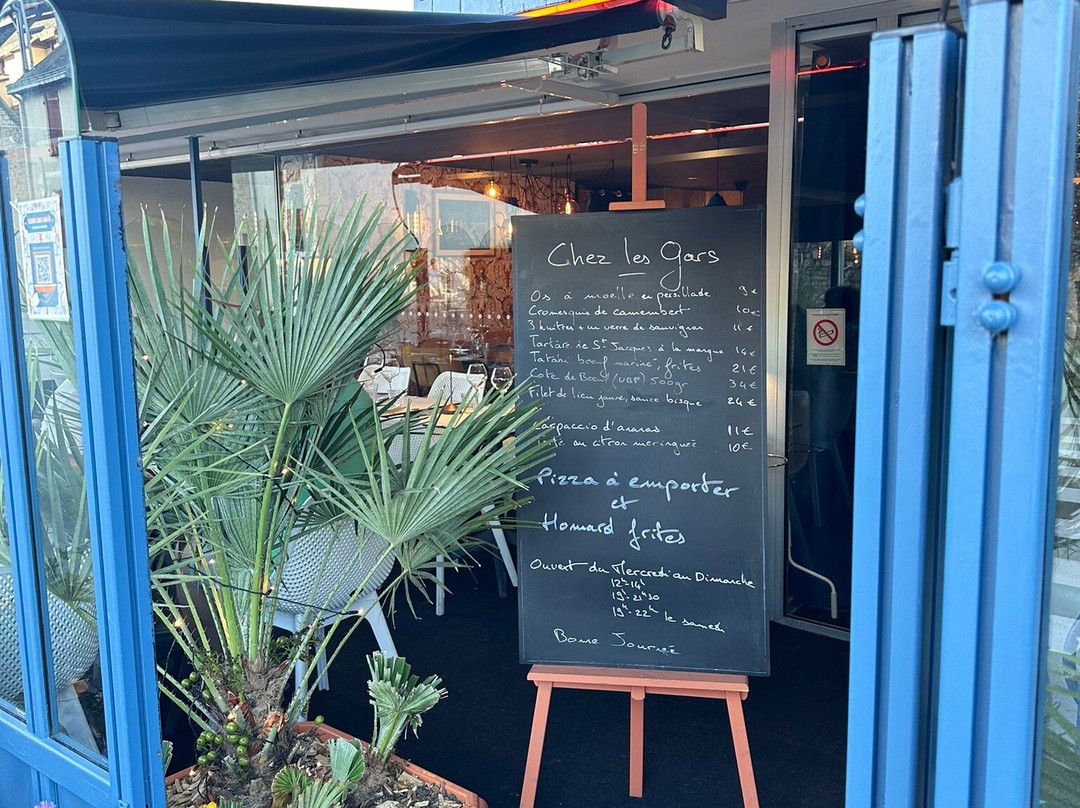 Chez les Gars
Os à moelle en persillade 9€
Cromesquis de camembert 10€
3 huîtres + un verre de sauvignon 11€
Tartare de St Jacques à la mangue 14€
Tataki bœuf mariné, frites 21€
Cote de Bœuf (VBF) 500gr 34€
Filet de lieu jaune, sauce bisque 24€
Carpaccio d'ananas 11€
au citron meringuée 10€
Pizza à emporter
et
Homard frites
Ouvert du Mercredi au Dimanche
12h-14h
19h-21h30
19h-22h le samedi
Bonne Journée